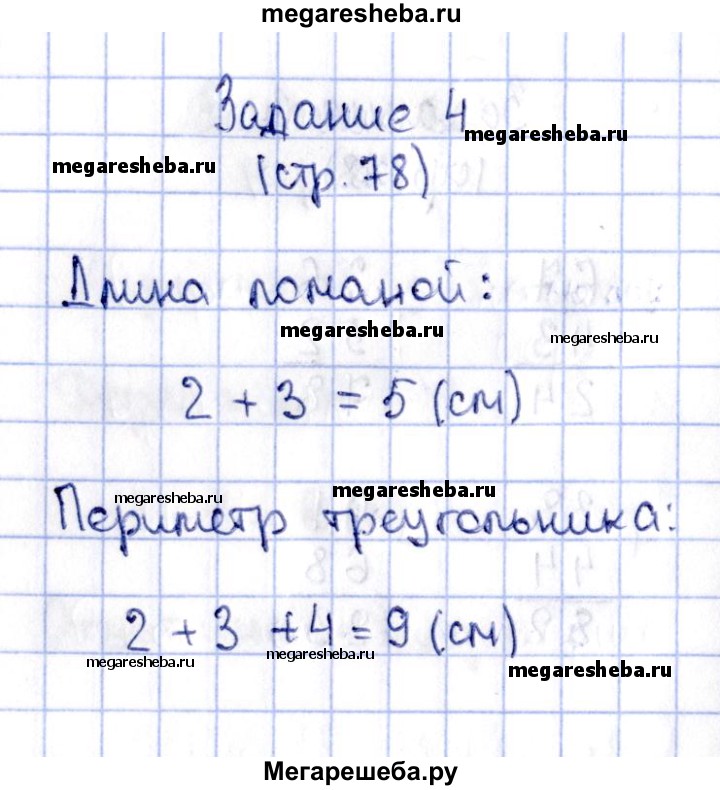 megaresheba.ru
Задание 4
megaresheba.ru
megaresheba.ru
(стр. 78)
Длина ломаной:
megaresheba.ru
megaresheba.ru
2 + 3 = 5 (см)
megaresheba.ru
megaresheba.ru
Периметр треугольника:
2 + 3 + 4 = 9 (см)
megaresheba.ru
megaresheba.ru
megaresheba.ru
Мегарешеба.ру